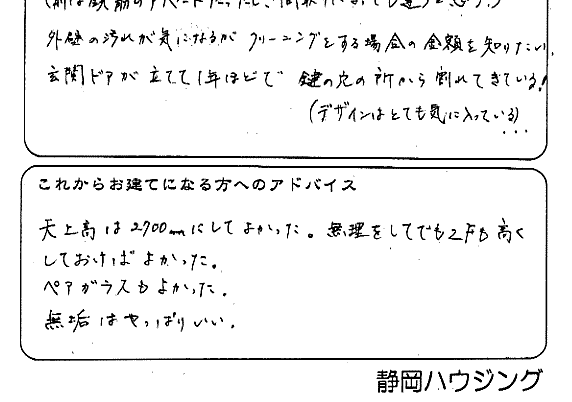 外壁の汚れが気になるが クリーニングをする場合の金額を知りたい。
玄関ドアが立てて1年ほどで 鍵の穴の所から割れてきている!
(デザインはとても気に入っている)...
これからお建てになる方へのアドバイス
天上高は2700mmにしてよかった。無理をしてでも2Fも高く
しておけばよかった。
ペアガラスもよかった。
無垢はやっぱりいい。
静岡ハウジング